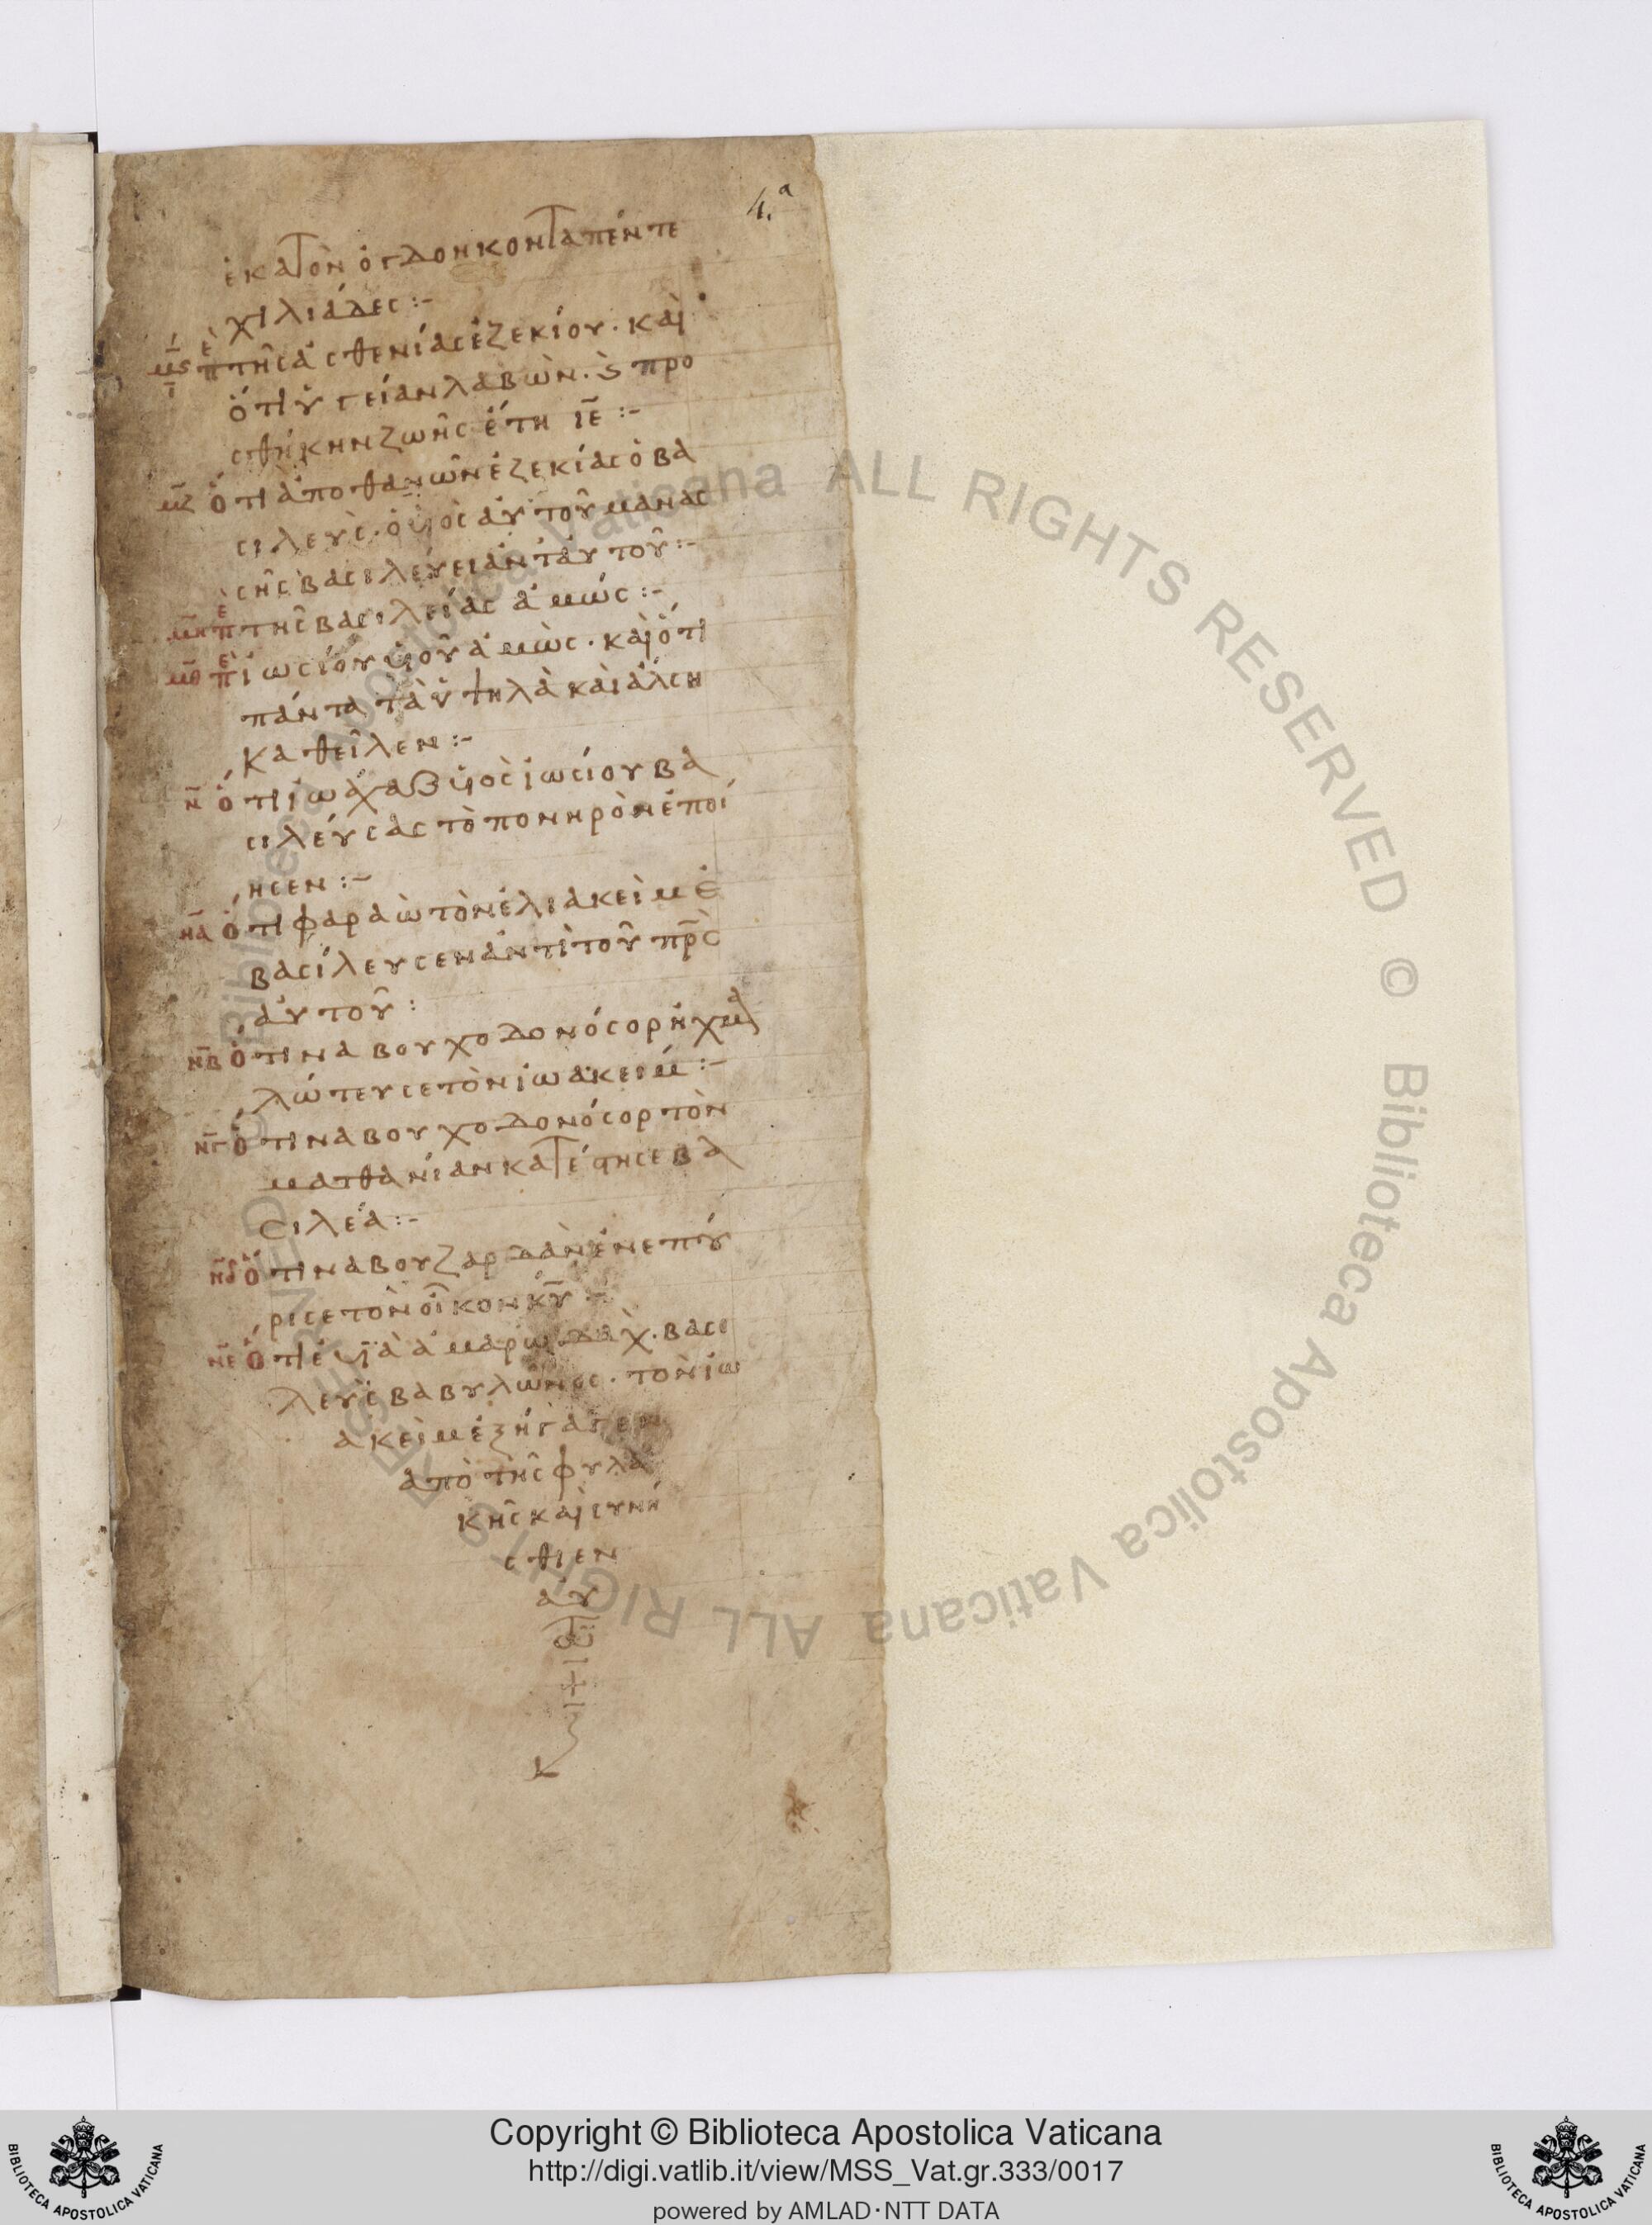 4.ᵃ
ἑκατὸν ὀγδοηκονταπέντε
χιλιάδες :-
μ̅ς̅ πὲ τῆς ἀσθενίας ἐζεκίου · καὶ
ὅτι ὑγείαν λαβὼν · ϗ προ
σθήκην ζωῆς ἔτη ι̅ε̅ :-
μ̅ζ̅ ὅτι ἀποθανὼν ἐζεκίας ὁ βα
σιλεὺς · ὁ υἱὸς αὐτοῦ μανασ
σῆς βασιλεύει ἀντ αὐτοῦ :-
μ̅η̅ πὲ τῆς βασιλείας ἀμώς :-
μ̅θ̅ πὲ ἰωσίου υἱοῦ ἀμὼς · καὶ ὅτι
πάντα τὰ ὑψηλὰ καὶ ἄλση
καθεῖλεν :-
ν̅ ὅτι ἰωάχαβ υἱὸς ἰωσίου βα
σιλεύσας τὸ πονηρὸν ἐποί
ησεν :-
ν̅α̅ ὅτι φαραὼ τὸν ἐλιακεὶμ ἐ
βασίλευσεν ἀντὶ τοῦ π̅ρ̅ς̅
αὐτοῦ :
ν̅β̅ ὅτι ναβουχοδονόσορ ἠχμα
λώτευσε τὸν ἰωακειμ :-
ν̅γ̅ ὅτι ναβουχοδονόσορ τὸν
ματθανίαν κατέστησε βα
σιλέα :-
ν̅δ̅ ὅτι ναβουζαρδὰν ἐνεπύ
ρισε τὸν οἶκον κ̅υ̅ :-
ν̅ε̅ ὅτι ἐυϊὰ ἀμαρωδὰχ · βασι
λεὺς βαβυλῶνος · τὸν ἰω
ακεὶμ ἐξήγαγεν
ἀπὸ τῆς φυλα
κῆς καὶ συνή
σθιεν
αὐ
τῶ
Copyright © Biblioteca Apostolica Vaticana
http://digi.vatlib.it/view/MSS_Vat.gr.333/0017
powered by AMLAD·NTT DATA
BIBLIOTECA APOSTOLICA VATICANA
BIBLIOTECA APOSTOLICA VATICANA
Biblioteca Apostolica Vaticana ALL RIGHTS RESERVED © Biblioteca Apostolica Vaticana ALL RIGHTS RESERVED ©